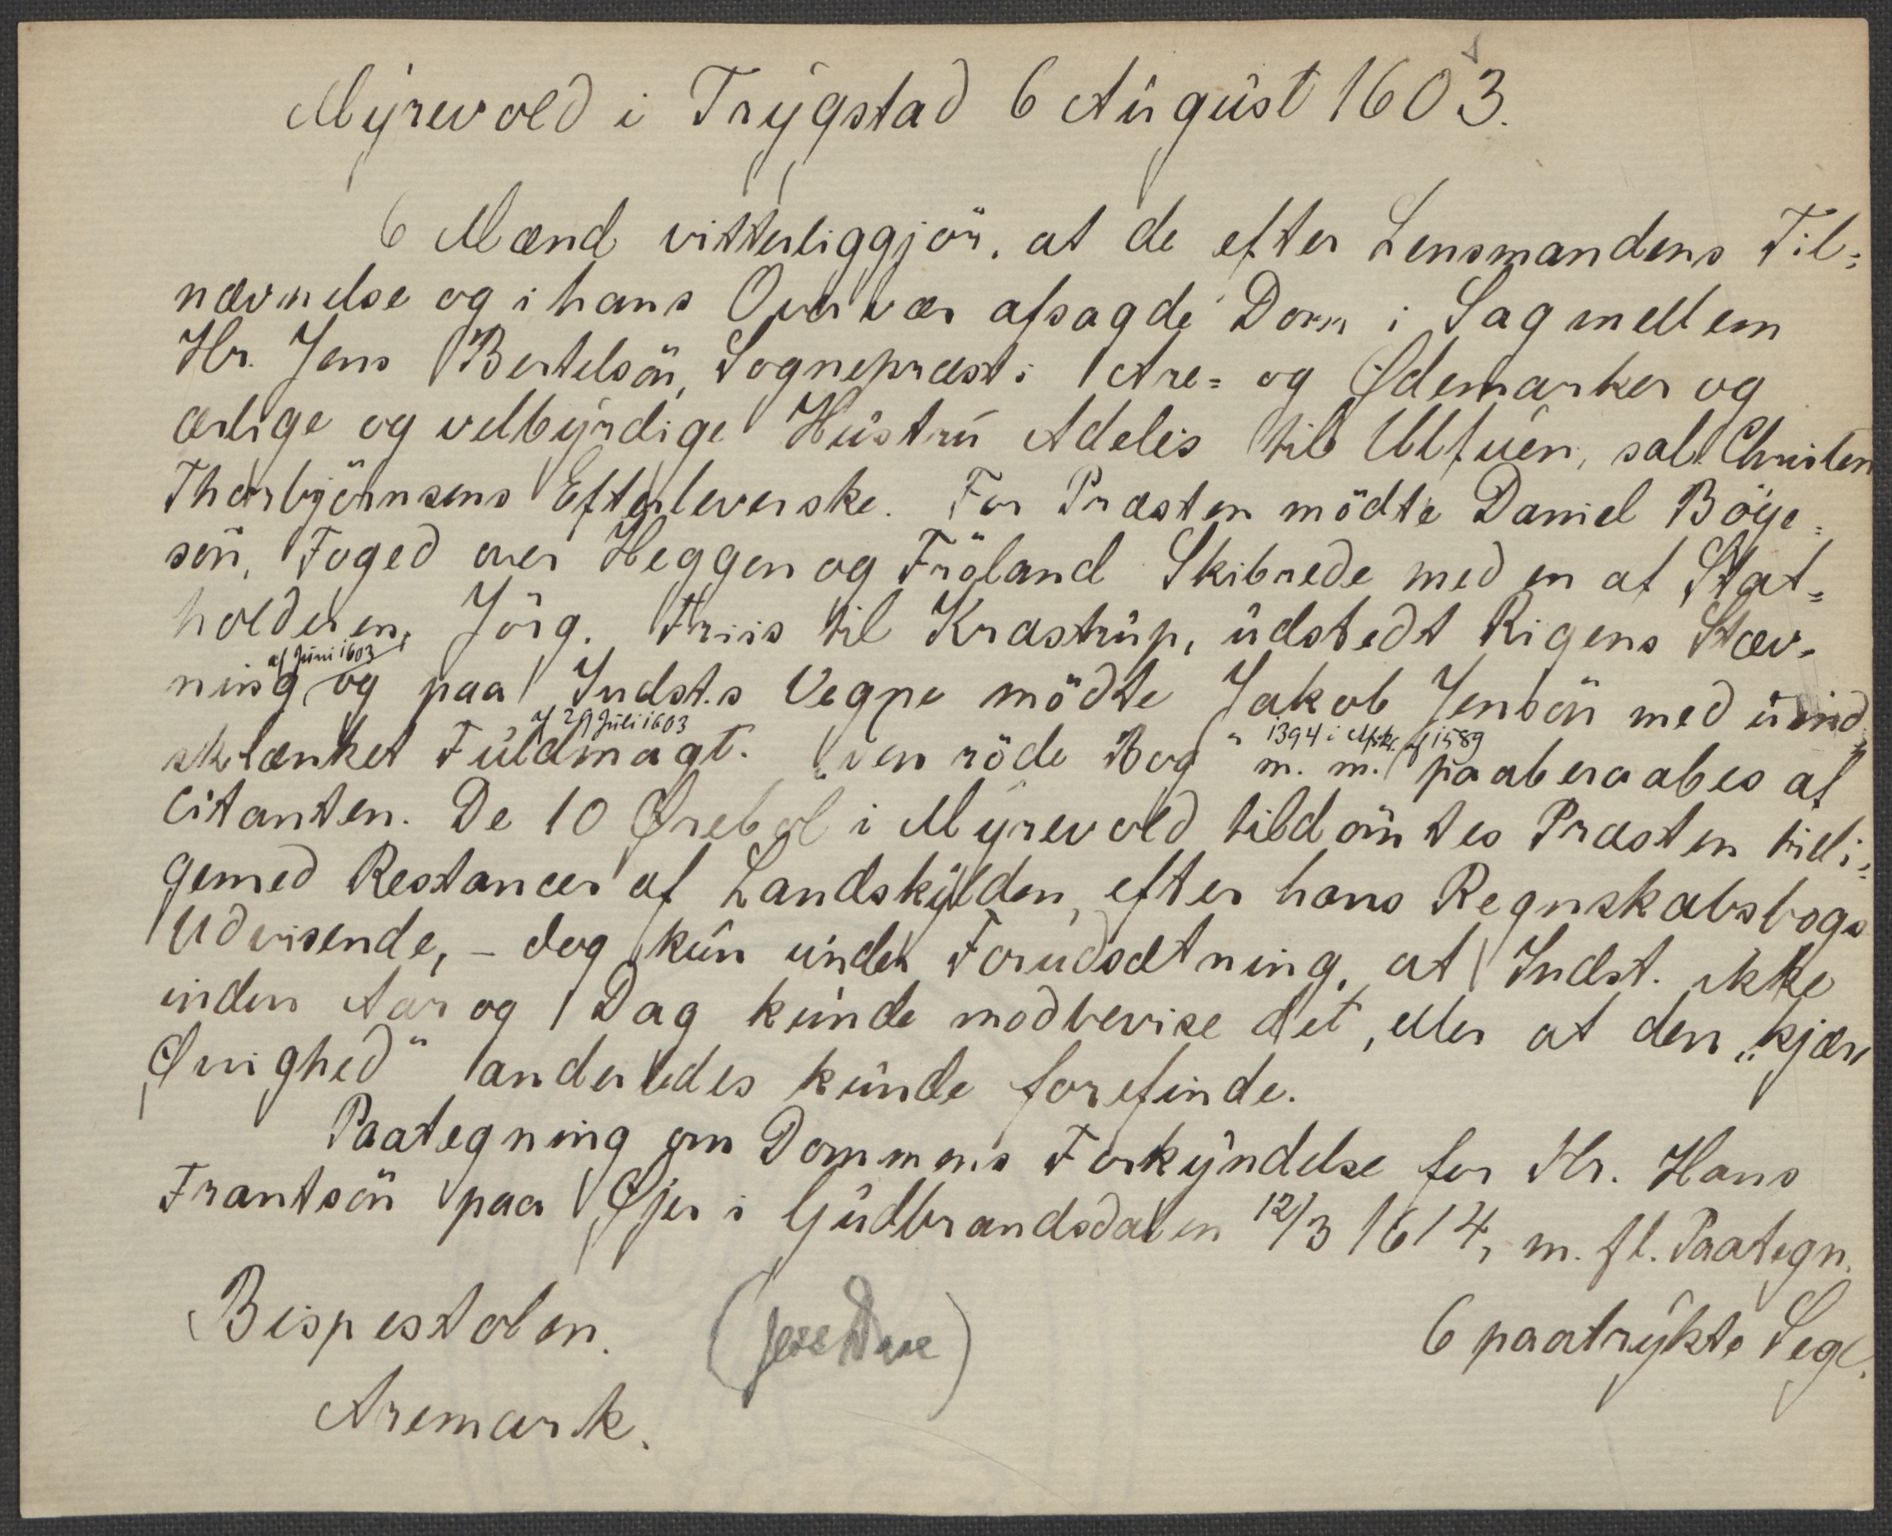 Myrevold i Trygstad 6 August 1603.
6 Mænd vitterliggjör, at de efter Lensmandens Til=
nævnelse og i hans Overvær afsagde Dom i Sag mellem
Hr. Jens Bertelsön, Sognepræst i Are= og Ødemarker og
ærlige og velbyrdige Hustru Adelis til Ulfuen, sal. Christen
Thorbjörnsens Efterleverske. For Præsten mödte Daniel Böye=
sön, Foged over Heggen og Fröland Skibrede med en af Stat=
holderen, Jörg. Friis til Krastrup, udstedt Rigens Stæv=
af Juni 1603
ning og paa Indst.s Vegne mödte Jakob Jensön med uind=
af 29 Juli 1603
skrænket Fuldmagt. „den röde Bog“ m. m. paaberaabes af
1394 i Afskr. af 1589
Citanten. De 10 Ørebol i Myrevold tildömtes Præsten tilli=
gemed Restancer af Landskylden, efter hans Regnskabsbogs
Udvisende, – dog kun under Forudsætning, at Indst. ikke
inden Aar og Dag kunde modbevise det, eller at den „kjære
Øvighed“ anderledes kunde forefinde.
Paategning om Dommens Forkyndelse for Hr. Hans
Frantsön paa Øjer i Gudbrandsdalen 12/3 1614, m. fl. Paategn.
Bispestolen.
6 paatrykte Segl.
Aremark.